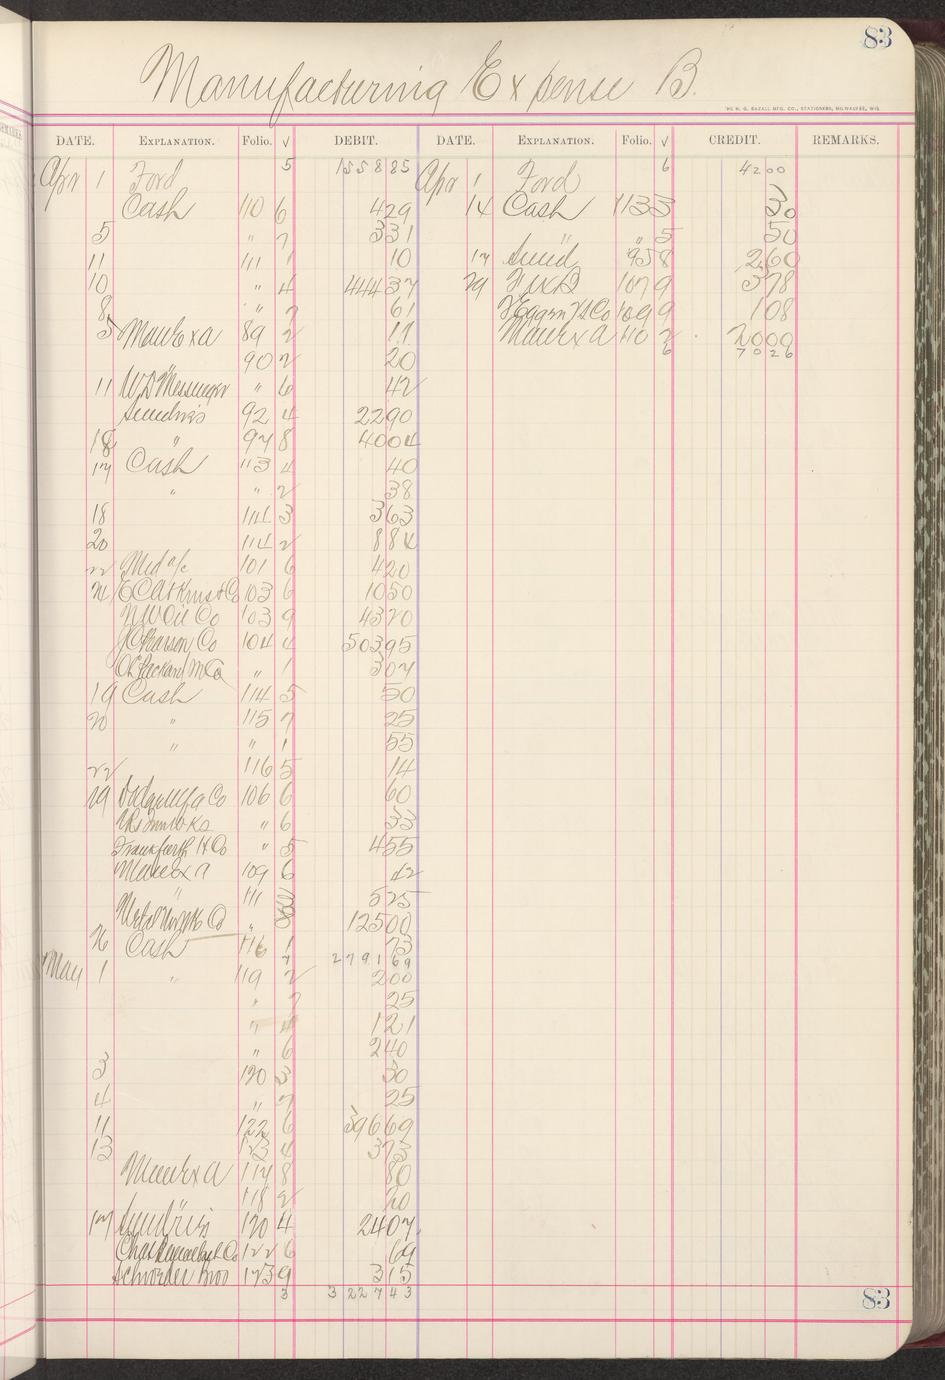 83
Manufacturing Expense B.
THE H. G. RAZALL MFG. CO., STATIONERS, MILWAUKEE, WIS.
DATE. EXPLANATION. Folio. √ DEBIT. DATE. EXPLANATION. Folio. √ CREDIT. REMARKS.
Apr 1 Ford 5 1558 85 Apr 1 Ford 6 42 00
Cash 110 6 4 29 14 Cash 113 3 30
5 " 7 3 31 " " 5 50
11 111 1 10 17 Sund 95 8 2 60
10 " 4 444 37 29 107 9 3 78
8 " 7 61 Co 109 9 1 08
5 Man Ex A 89 2 11 Man Ex A 110 2 20 00
90 2 20 6 70 26
11 W D Messinger " 6 42
Sundries 92 4 22 90
18 " 97 8 40 04
17 Cash 113 4 40
" " 2 38
18 114 3 3 63
20 114 2 8 84
22 Md a/c 101 6 4 20
24 E C Atkins & Co 103 6 10 50
N W Oil Co 103 9 43 70
Pearson Co 104 4 503 95
Packard M Co " 1 3 07
19 Cash 114 5 50
20 " 115 7 25
" " 1 55
22 116 5 14
29 Dodge Mfg Co 106 6 60
" 6 33
Frankfurth H Co " 5 4 55
Man Ex A 109 6 42
" 111 3 5 25
Co " 8 125 00
26 Cash 116 1 73
7 2791 69
May 1 " 119 2 2 00
" 7 25
" 4 1 21
" 6 2 40
3 120 3 30
4 " 7 25
11 122 6 396 69
13 123 4 3 73
Man Ex A 117 8 80
" 118 2 20
17 Sundries 120 4 24 07
Chas Co 122 6 69
Schroeder Bros 123 9 3 15
3 3227 43
83